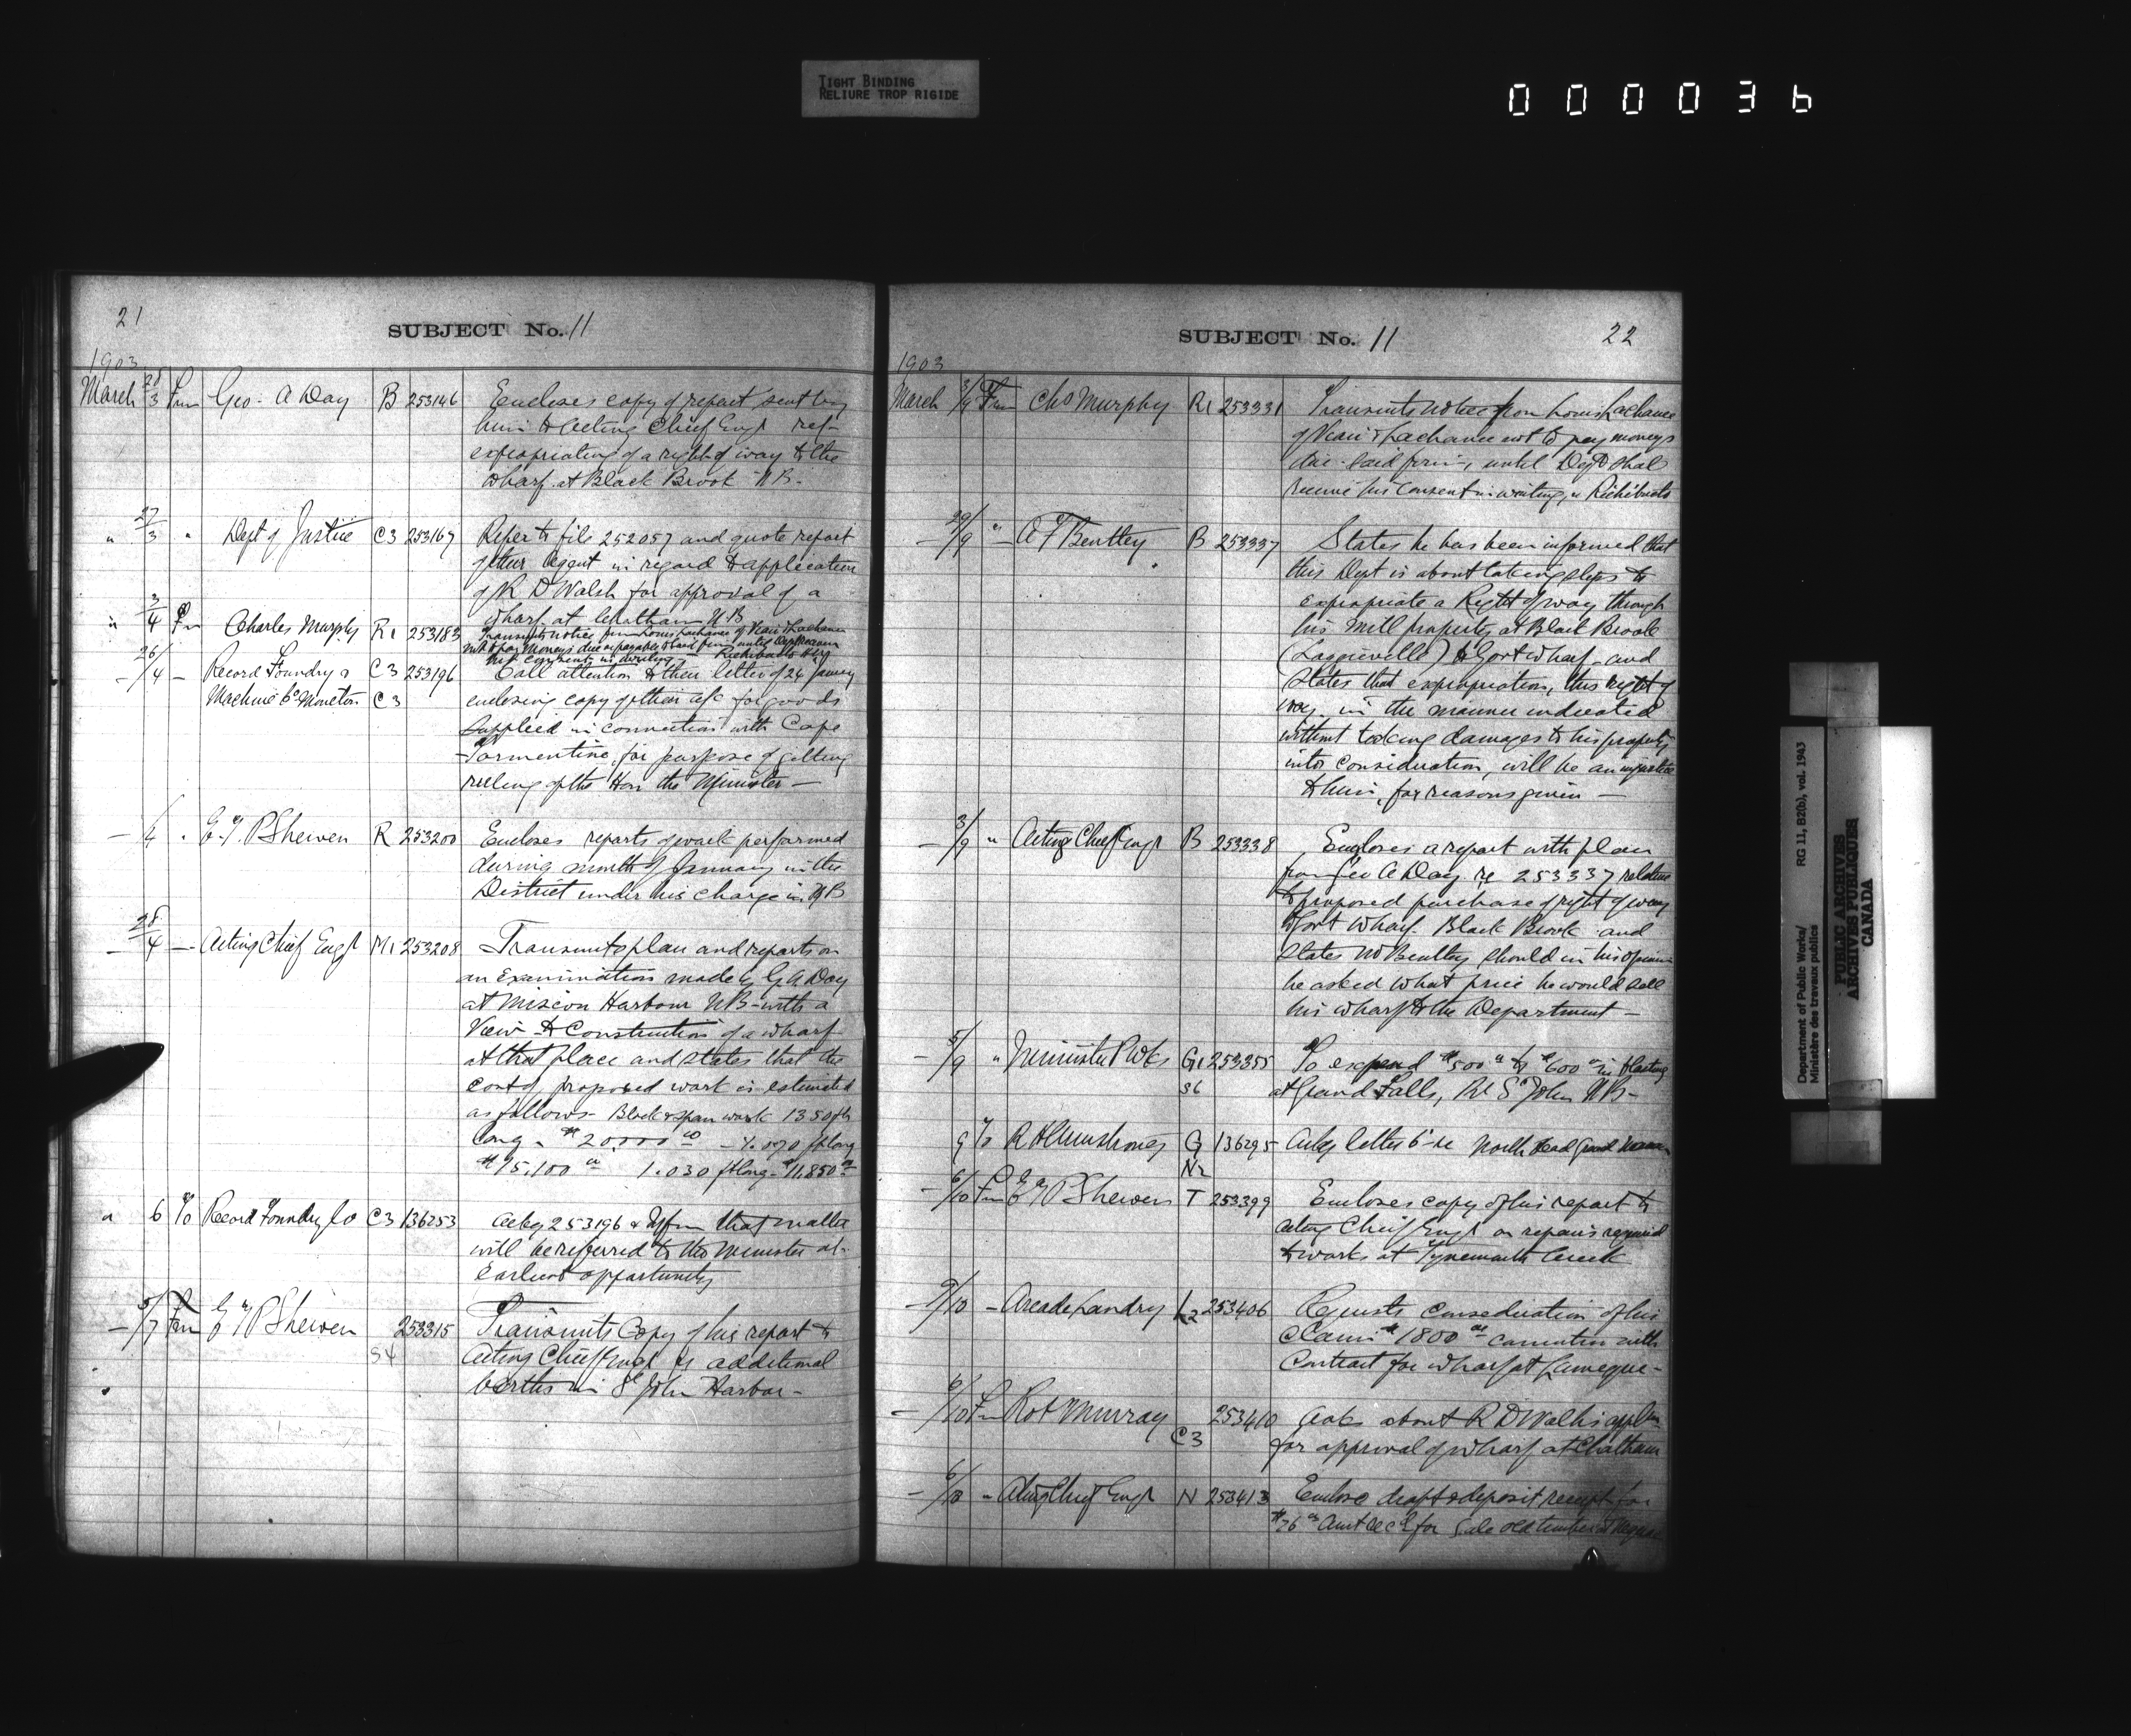 TIGHT BINDING
RELIURE TROP RIGIDE
000036
21
SUBJECT No. 11
1903
March 28/3 Frm Geo. A Day B 253146 Encloses copy of report sent by
him to Acting Chief Engr ref-
expropriating of a right of way to the
wharf at Black Brook N.B.
" 27/3 " Dept of Justice C3 253167 Refer to file 252057 and quote report
of their Agent in regard to application
of R D Walsh for approval of a
wharf at Chatham N B
" 3/4 Frm Charles Murphy R1 253183 Transmits notice from Louis Lachance of Lachance
not to pay moneys due or payable to said firm until Dept receives
his consent in writing - Richibucto
26/4 Record Foundry & C3 253196 Call attention to their letter of 24 January
Machine Co Moncton C3 enclosing copy of their a/c for goods
supplied in connection with Cape
Tormentine, for purpose of getting
ruling of the Hon the Minister -
4 " E. T. P Shewen R 253200 Encloses reports of work performed
during month of January in the
District under his charge in N B
28/4 Acting Chief Engr M1 253208 Transmits plan and reports on
an Examination made by G A Day
at Miscou Harbour N B with a
View to Construction of a wharf
at that place and states that the
cost of proposed work is estimated
as follows - Block & span work 1350 ft
long - $20000 00 - 1.070 ft long
$15,100 00 1.030 ft long - $11,850 00
" 6 To Record Foundry Co C3 136253 Ackg 253196 & Inform that matter
will be referred to the Minister at
Earliest opportunity
5/7 Frm E T P Shewen 253315 Transmits Copy of his report to
S4 Acting Chief Engr re additional
berths in St John Harbor -
SUBJECT No. 11
22
1903
March 3/9 Frm Chs Murphy R1 253331 Transmits notice from Louis Lachance
of Lachance not to pay moneys
due said firm, until Dept shall
receive his consent in writing, re Richibucto
29/9 " A F Bentley B 253337 States he has been informed that
this Dept is about taking steps to
expropriate a Right of way through
his mill property at Black Brook
(Loggieville) to Govt wharf - and
States that expropriation, this right of
way in the manner indicated
without taking damages to his property
into consideration, will be an injustice
to him, for reasons given -
3/9 " Acting Chief Engr B 253338 Encloses a report with plan
from Geo A Day re 253337 relative
to proposed purchase of right of way
to Govt Wharf Black Brook and
States Mr Bentley should in his opinion
be asked what price he would sell
his wharf to the Department -
5/9 " Minister P Wks G1 253355 To expend $500 00 to $600 00 in blasting
S6 at Grand Falls, Rr St John N B -
9 To R H Armstrong G 136295 Ackg letter 6th re North Head Grand Manan
N2
6/10 Frm E T P Shewen T 253399 Encloses copy of his report to
acting Chief Engr on repairs required
to works at Tynemouth Creek
9/10 Arcade Landry L2 253406 Requests consideration of his
Claim $1800 00 connection with
Contract for wharf at Lameque -
6/10 Frm Robt Murray 253410 Asks about R D Walsh's appln
C3 for approval of wharf at Chatham
6/10 " Acting Chief Engr N 253413 Enclose draft & deposit receipt for
$26 00 Amt recd for Sale old timber at
Department of Public Works/
Ministère des travaux publics
RG 11, B2(b), vol. 1943
PUBLIC ARCHIVES
ARCHIVES PUBLIQUES
CANADA